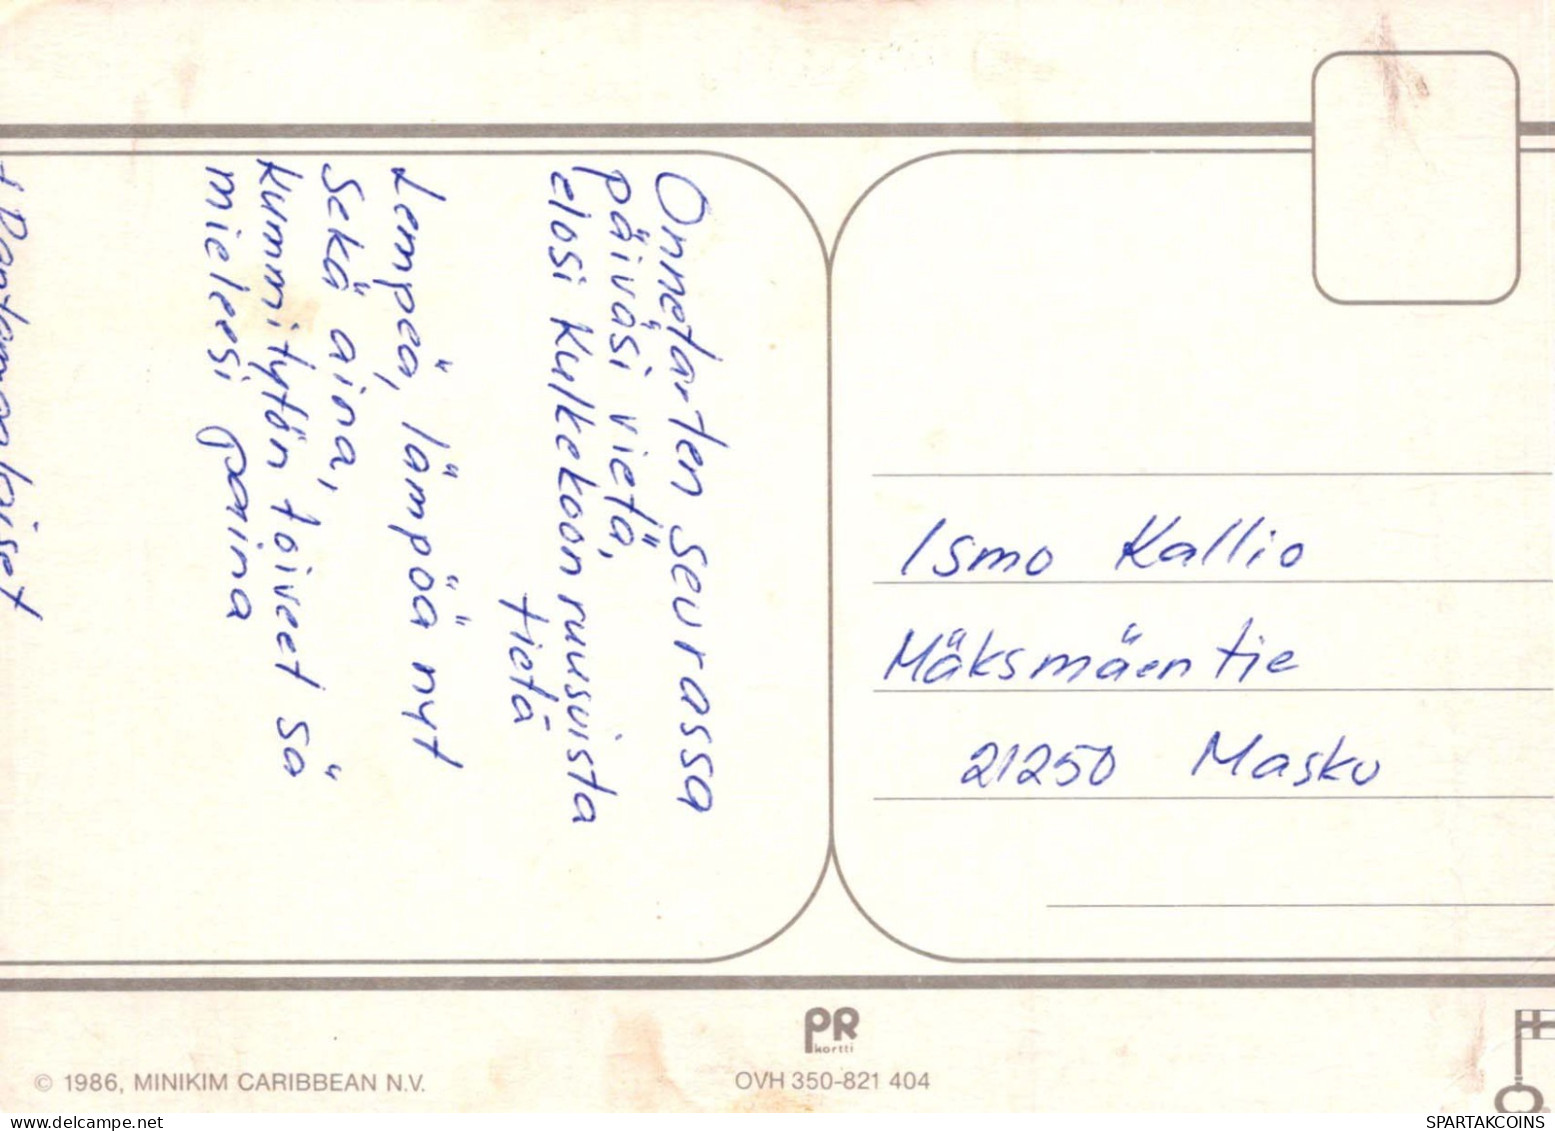 Onnetarten seurassa
päiväsi vietä,
elosi kulkekoon ruusuista
tietä
Lempeä, lämpöä nyt
sekä aina,
kummitytön toiveet sä
mieleesi paina
Ismo Kallio
Mäksmäentie
21250 Masku
PR
kortti
© 1986, MINIKIM CARIBBEAN N.V.
OVH 350-821 404
delcampe.net
SPARTAKCOINS